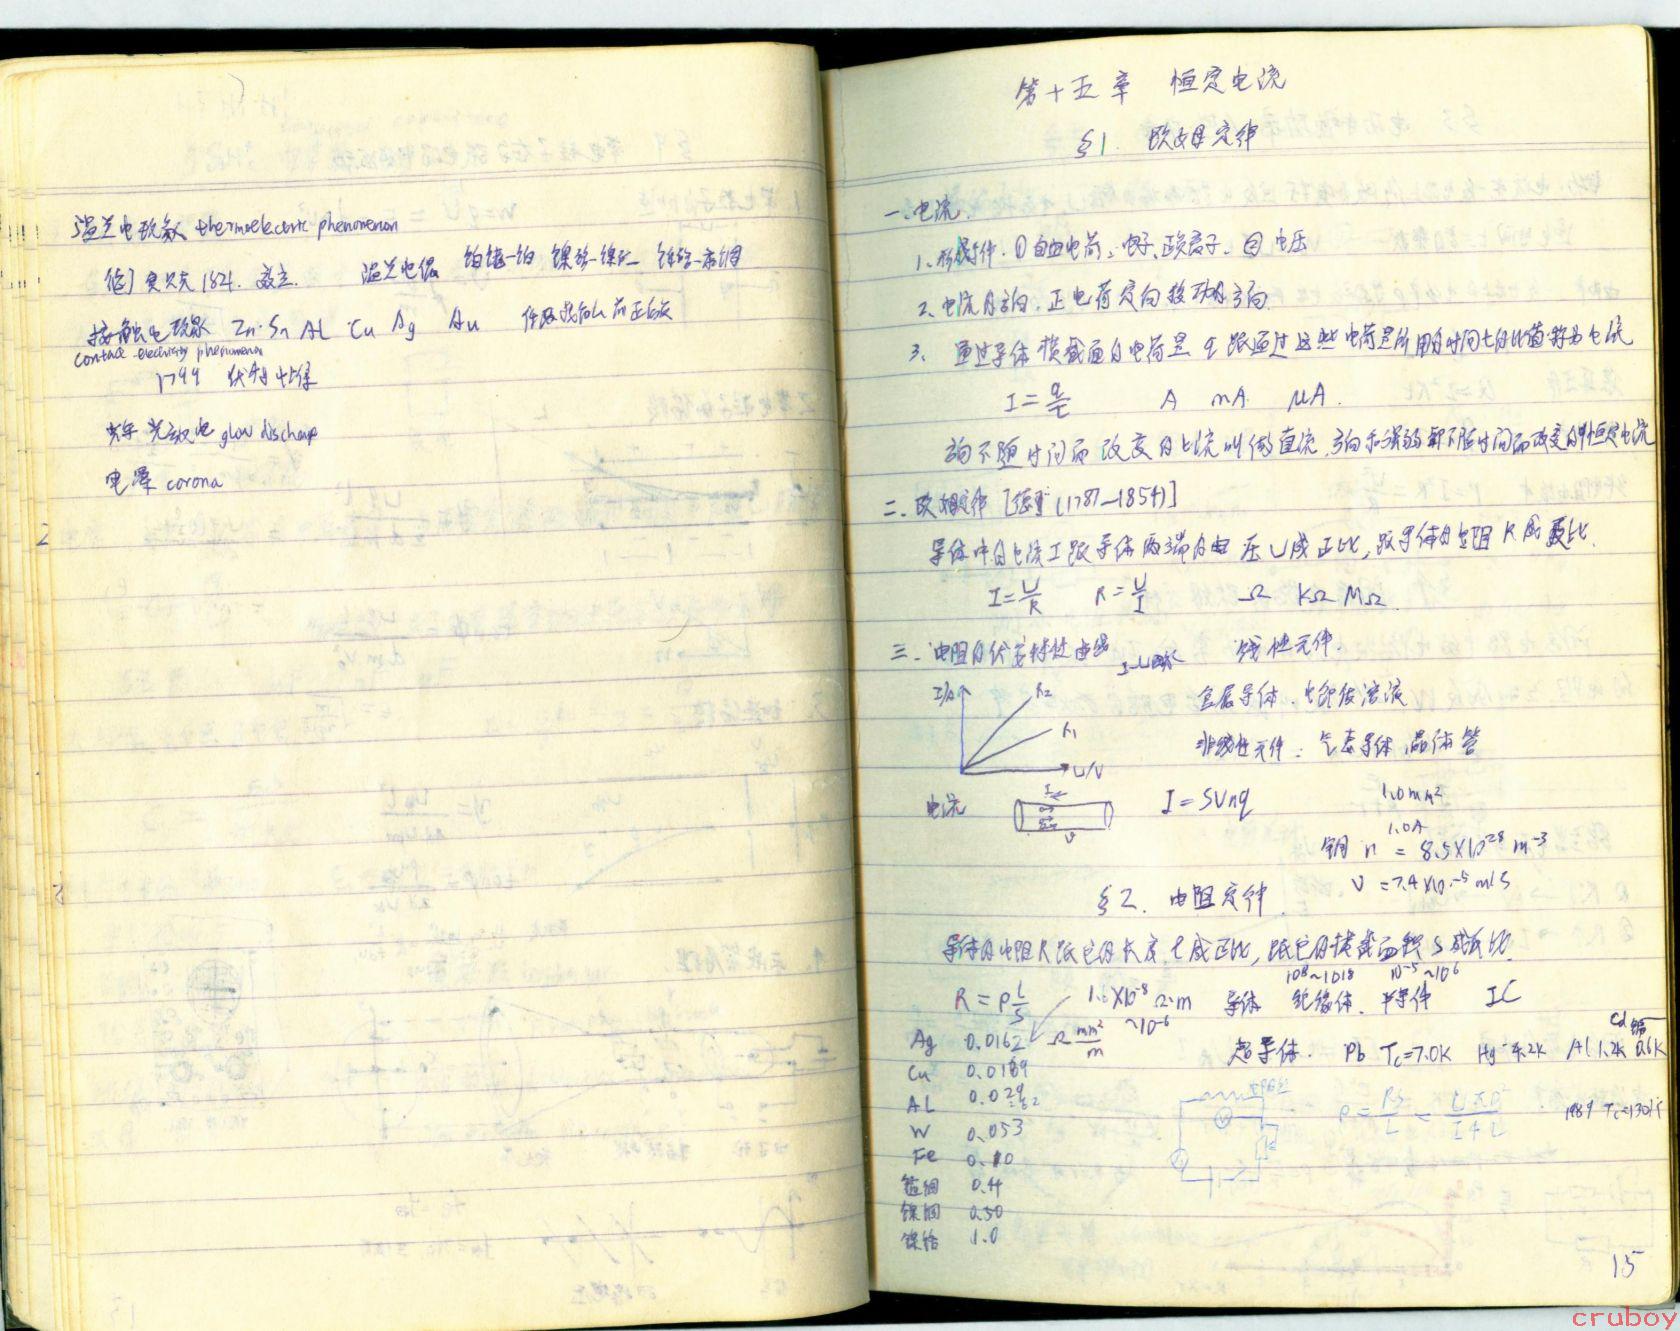 温差电现象 thermoelectric phenomenon
[德] 贝克 1821. 成立. 温差电偶 铂铑-铂 镍铬-镍
接触电现象 Zn. Sn Al Cu Ag Au 任两接触 前正后
contact electricity phenomena
1799 伏特
光放电 glow discharge
电晕 corona
第十五章 恒定电流
§1. 欧姆定律
一、电流.
1、形成条件. ① 自由电荷: 电子、正负离子. ② 电压
2、电流的方向. 正电荷定向移动的方向.
3、通过导体横截面的电荷量 q 跟通过这些电荷量所用的时间 t 的比值称为电流
I = q/t A mA. μA.
方向不随时间而改变的电流叫做直流. 方向和强弱都不随时间而改变的叫恒定电流
二、欧姆定律 [德] (1787—1854)
导体中的电流 I 跟导体两端的电压 U 成正比, 跟导体的电阻 R 成反比.
I = U/R R = U/I Ω KΩ MΩ.
三、电阻的伏安特性曲线 I-U曲线 线性元件.
I/A R2 金属导体、电解质溶液
R1 非线性元件: 气态导体 晶体管
U/V
电流 I I = SVnq 1.0mm²
v 1.0A
铜 n = 8.5×10²⁸ m⁻³
V = 7.4×10⁻⁵ m/s
§2. 电阻定律.
导体的电阻 R 跟它的长度 l 成正比, 跟它的横截面积 S 成反比.
10⁸~10¹⁸ 10⁻⁵~10⁶
R = ρ L/S 1.6×10⁻⁸ Ω·m 导体 绝缘体. 半导体 IC
~10⁻⁶
Ag 0.0162 Ω mm²/m 超导体. Pb Tc=7.0K Hg 4.2K Al 1.2K Cd 镉 0.6K
Cu 0.0169
AL 0.029
W 0.053 ρ = RS/L = UπD²/I4L 1989 Tc=130K
Fe 0.10
锰铜 0.44
镍铜 0.50
镍铬 1.0
15
cruboy